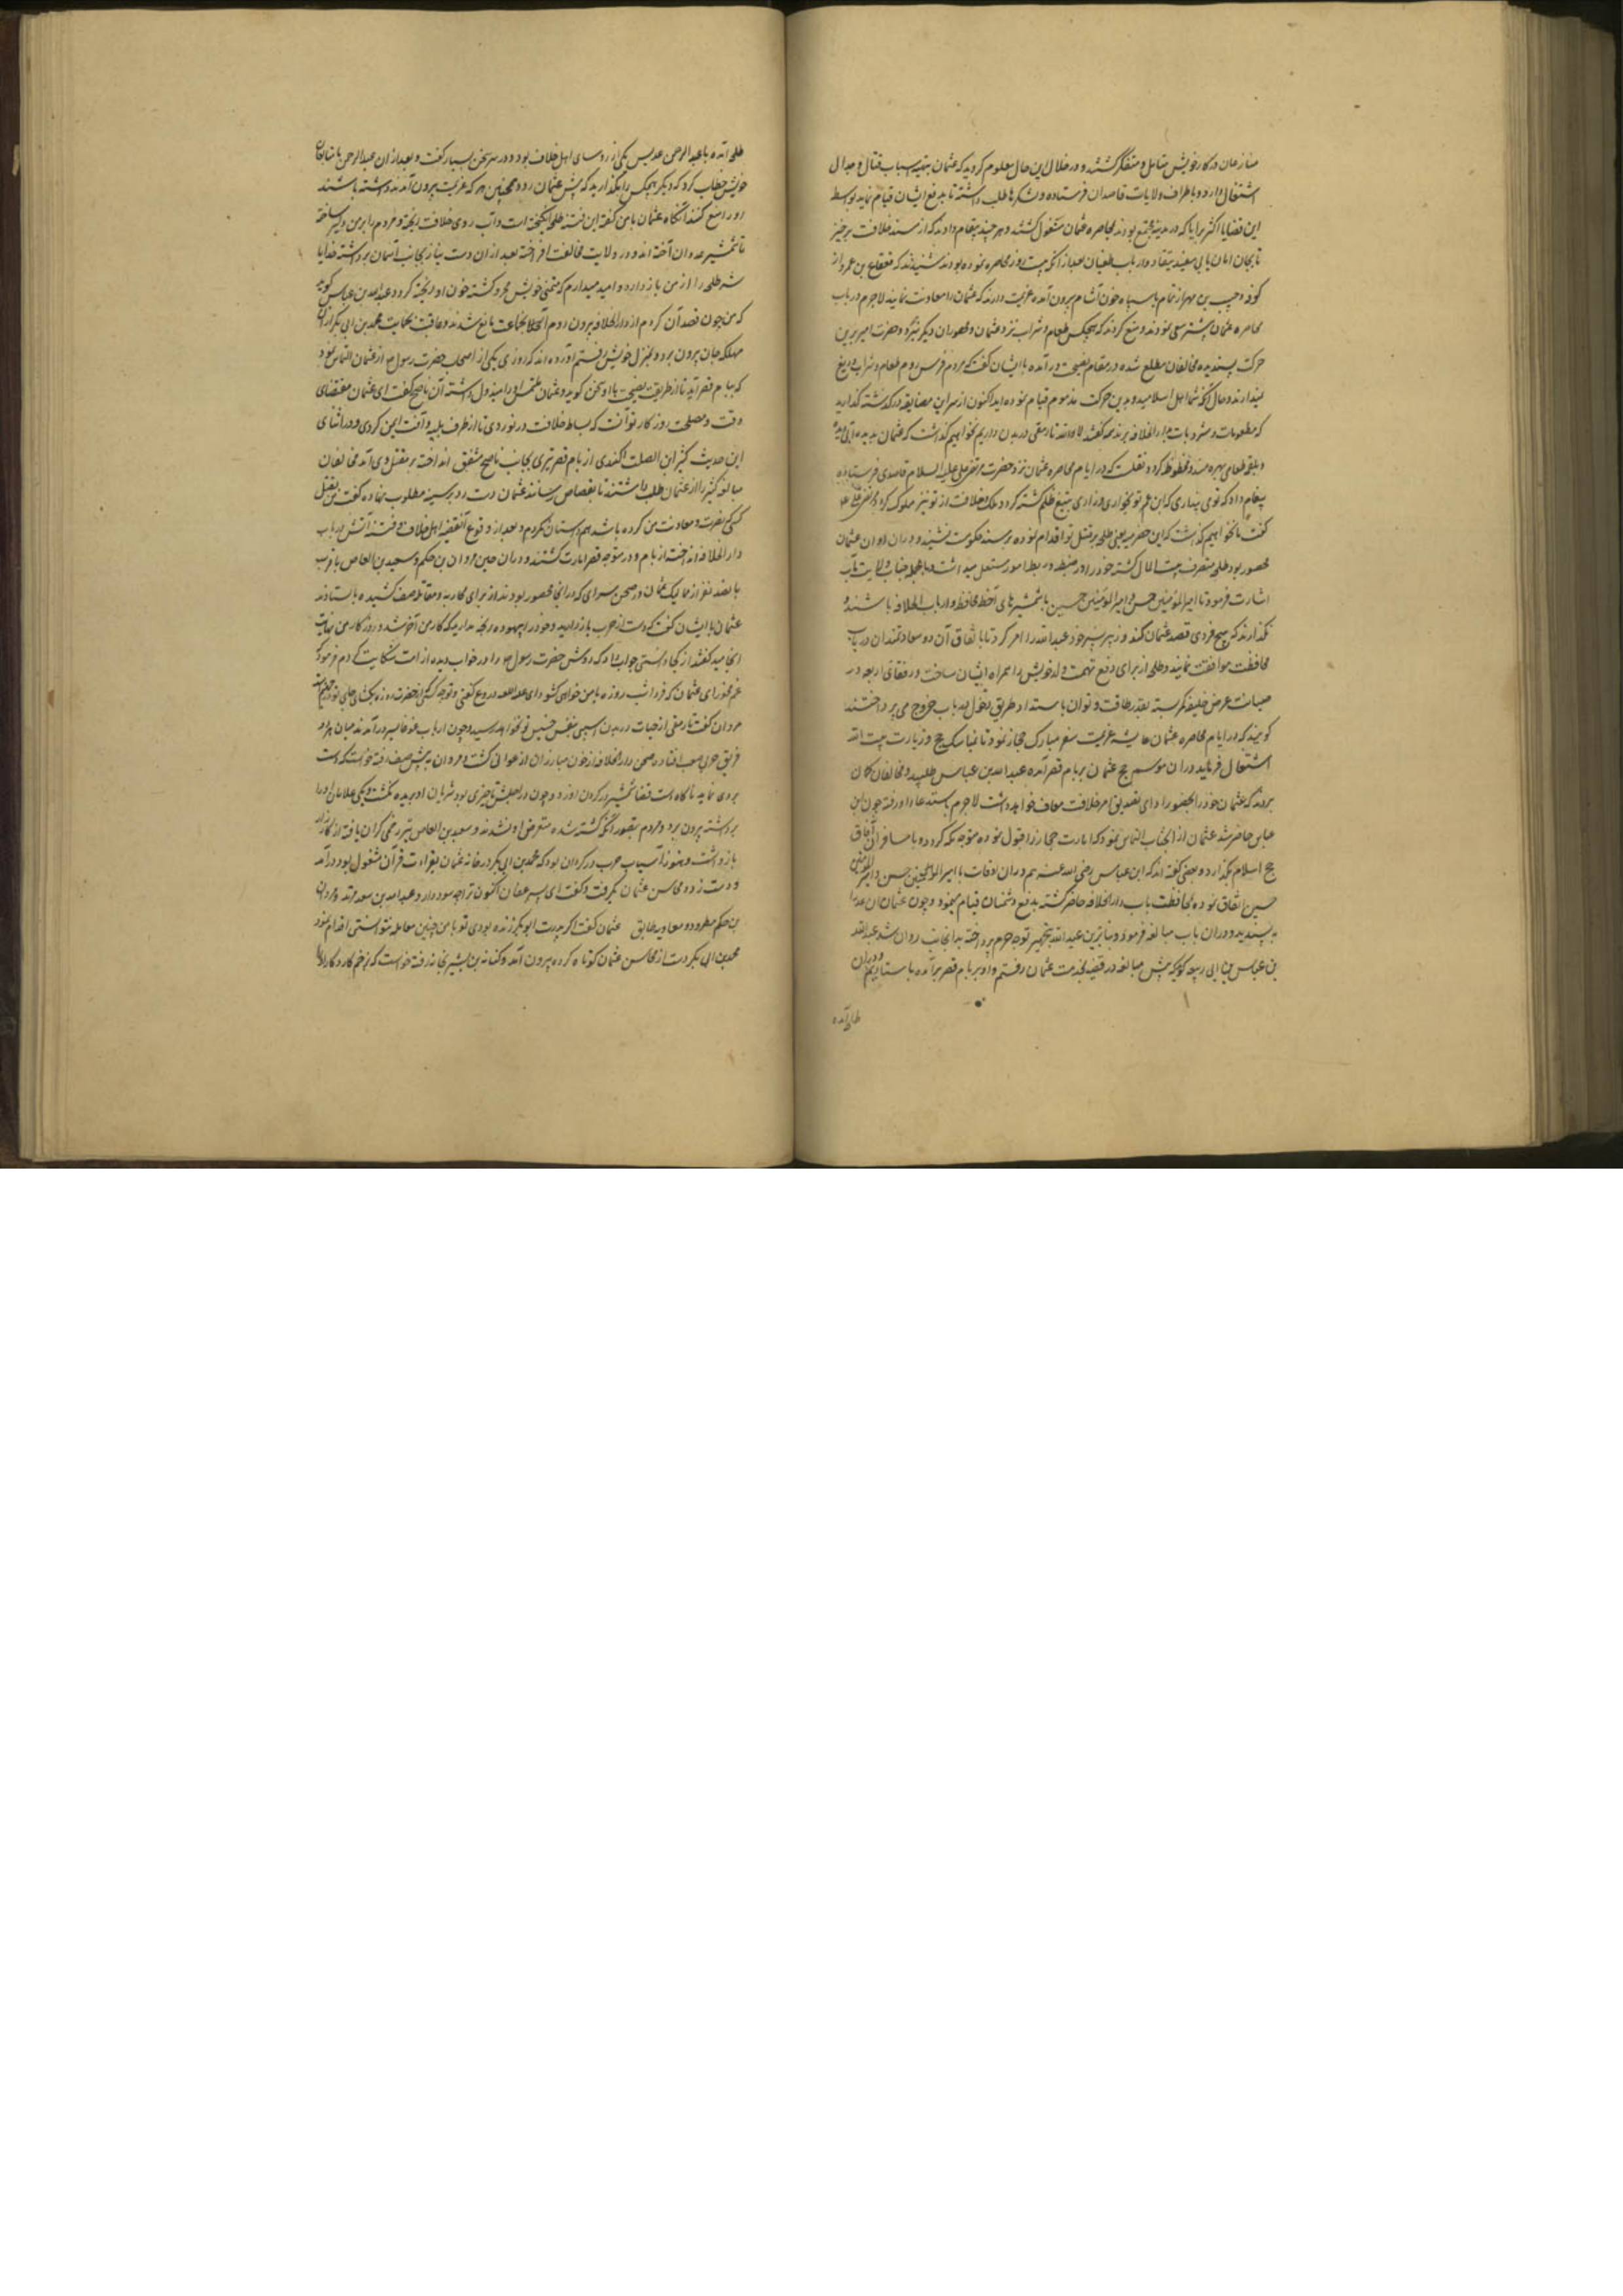 منازعان در کار خویش متامل و متفکر گشتند و در خلال این حال معلوم کردید که عثمان بتهیه اسباب قتال و جدال
اشتغال دارد و باطراف ولایات قاصدان فرستاده و لشکرها طلب داشته تا بدفع ایشان قیام نماید بواسطه
این قضایا اکثر برایا که در مدینه مجتمع بودند بمحاصره عثمان مشغول گشتند و هر چند پیغام دادند که از مسند خلافت برخیز
تا بجان امان یابی مفید نیفتاد و ارباب طغیان بعد از آنکه بیست روز محاصره نموده بودند شنیدند که قعقاع بن عمرو از
کوفه و حبیب بن از شام با سپاه خون آشام بیرون آمده عزیمت دارند که عثمان را معاونت نمایند لاجرم در باب
محاصره عثمان بیشتر سعی نمودند و منع کردند که هیچکس طعام و شراب نزد عثمان و محصوران دیگر نبرد و حضرت امیر برین
حرکت ناپسندیده مخالفان مطلع شده در مقام نصیحت درآمده با ایشان گفت که مردم فرس و روم طعام و شراب دریغ
نمیدارند و حال آنکه شما اهل اسلامید و بدین حرکت مذموم قیام نموده اید اکنون از سر این مضایقه درگذشته گذارید
که مطعومات و مشروبات بدار الخلافه برند همه گفتند لا والله تا رمقی در بدن داریم نخواهیم گذاشت که عثمان
و بلقمه طعامی بهره مند و محظوظ گردد نقلست که در ایام محاصره عثمان نزد حضرت مرتضی علی علیه السلام قاصدی فرستاده
پیغام داد که توی پنداری که ابن عم تو بخواری و زاری بتیغ ظلم کشته گردد و ملک خلافت از تو نیز مسلوک گردد مرتضی علی
گفت ما نخواهیم گذاشت که ابن حضرمیه یعنی طلحه بر قتل تو اقدام نموده بر مسند حکومت نشیند و در ان اوان عثمان
محصور بود طلحه متصرف بیت المال گشته خود را در ضبط و ربط امور مستقل میدانست و بالجمله جناب ولایت مآب
اشارت فرمود تا امیر المؤمنین حسن و امیر المؤمنین حسین با شمشیرهای آخته محافظ دار باب الخلافه باشند و
نگذارند که هیچ فردی قصد عثمان کند و زبیر پسر خود عبد الله را امر کرد تا باتفاق آن دو سعادتمندان در باب
محافظت موافقت نمایند و طلحه از برای دفع تهمت ولد خویش را همراه ایشان ساخت و رفقای اربعه در
صیانت عرض خلیفه کمر بسته بقدر طاقت و توان باستداد طریق دخول و باب خروج می پرداختند
گویند که در ایام محاصره عثمان عایشه عزیمت سفر مبارک حجاز نمود تا بمناسک حج و زیارت بیت الله
اشتغال فرماید در ان موسم حج عثمان بر بام قصر آمده عبد الله بن عباس طلبید و مخالفان گمان
بردند که عثمان خود را بحضور از امر خلافت معاف خواهد داشت لاجرم باستدعا او رفته چون ابن
عباس حاضر شد عثمان از آنجناب التماس نمود که امارت حجاز را قبول نموده متوجه مکه گردد و با مسافران آفاق
حج اسلام بگذارد و بعضی گفته اند که ابن عباس رضی الله عنه هم در ان اوقات با امیر المؤمنین حسن و امیر المؤمنین
حسین اتفاق نموده بمحافظت باب دار الخلافه حاضر گشته بدفع دشمنان قیام مینمود و چون عثمان ان عذر
نه پسندید و در ان باب مبالغه فرمود و بنابرین عبد الله بتجهیز توجه حرم پرداخته بدانجانب روان شد عبد الله
بن عباس بن ابی ربیعه گوید که پیش مبالغه در قضیه بخدمت عثمان رفتم و او بر بام قصر برآمده باستادیم و در ان
طلحه آمده
طلحه آمده با عبد الرحمن عدیس یکی از روسای اهل خلاف بود و در سر سخن بسیار گفت و بعد از ان عبد الرحمن با متابعان
خویش خطاب کرد که دیگر هیچکس را نگذارید که پیش عثمان رود و همچنین هر که عزیمت بیرون آمدن داشته باشند
او را منع کنند آنگاه عثمان با من گفته این فتنه طلحه انگیخته است و آب روی خلافت ریخته و مردم را بر من دلیر ساخته
تا شمشیر عدوان آخته اند و در ولایت مخالفت افراخته بعد از ان دست نیاز بجانب آسمان برداشته خدایا
شر طلحه را از من باز دار و امید میدارم که متمنی خویش محروم گشته خون او ریخته گردد عبد الله بن عباس گوید
که من چون قصد آن کردم از دار الخلافه بیرون روم آنجماعت مانع شدند و عاقبت بحمایت محمد بن ابی بکر از ان
مهلکه جان بیرون برده بمنزل خویش رفتم آورده اند که روزی یکی از اصحاب حضرت رسول ص از عثمان التماس نمود
که ببام قصر آید تا از طریق نصیحت با او سخن گوید و عثمان ملتمس او را مبذول داشته آن ناصح گفت ای عثمان مقتضای
وقت و مصلحت روزگار تو آنست که بساط خلافت در نوردی تا از طرف بلیه و آفت ایمن گردی و در اثنای
این حدیث کثیر ابن الصلت الکندی از بام قصر تیری بجانب ناصح مشفق انداخت بر مقتل وی آمد مخالفان
مبالغه کثیر را از عثمان طلب داشتند تا بقصاص رسانند عثمان دست رد بر سینه مطلوب نهاده گفت من بقتل
کسی که نصرت و معاونت من کرده باشد همداستان نگردم و بعد از وقوع آنقضیه اهل خلاف و فتنه آتش در باب
دار الخلافه انداخته از بام و در متوجه قصر امارت گشتند و در ان حین مروان بن حکم و سعید بن العاص با قرب
پانصد نفر از ممالیک عثمان در صحن سرای که در انجا محصور بودند از برای محاربه و مقاتله صف کشیده باستادند
عثمان با ایشان گفت که دست از حرب بازدارید و خود را بیهوده رنجه مدارید که کار من آخر شد و روزگار من بنهایت
انجامید گفتند از کجا دانستی جواب داد که دوش حضرت رسول ص را در خواب دیده از امت شکایت کردم فرمود که
غم مخور ای عثمان که فردا شب روزه با من خواهی گشود
مروان گفت تا رمقی از حیات در بدن آسیبی بنفس نفیس تو نخواهد رسید و چون ارباب غوغا بسر درآمدند میان هر دو
فریق حرب صعب افتاده صحن دار الخلافه از خون مبارزان ارغوانی گشت و مروان به پیش صف رفته خواست که دست
بردی نماید ناگاه دست قضا شمشیر در گردن او زد و چون در اجلش تاخیری بود شریان او بریده نگشت و یکی غلامان او را
برداشته بیرون برد و مردم بتصور آنکه کشته شده متعرض او نشدند و سعید بن العاص نیز زخمی گران یافته از کارزار
بازداشت و هنوز آسیاب حرب در گردان بود که محمد بن ابی بکر در خانه عثمان بقراءت قرآن مشغول بود درآمد
و دست زده محاسن عثمان بگرفت و گفت ای پسر عفان اکنون ترا چه سود دارد عبد الله بن سعد مرتد و مروان
بن حکم مطرود و معاویه طالق عثمان گفت اگر پدرت ابو بکر زنده بودی تو با من چنین معامله نتوانستی اقدام نمود
محمد بن ابی بکر دست از محاسن عثمان کوتاه کرده بیرون آمد و کنانه بن بشیر بخانه رفته خواست که بزخم کارد کار او